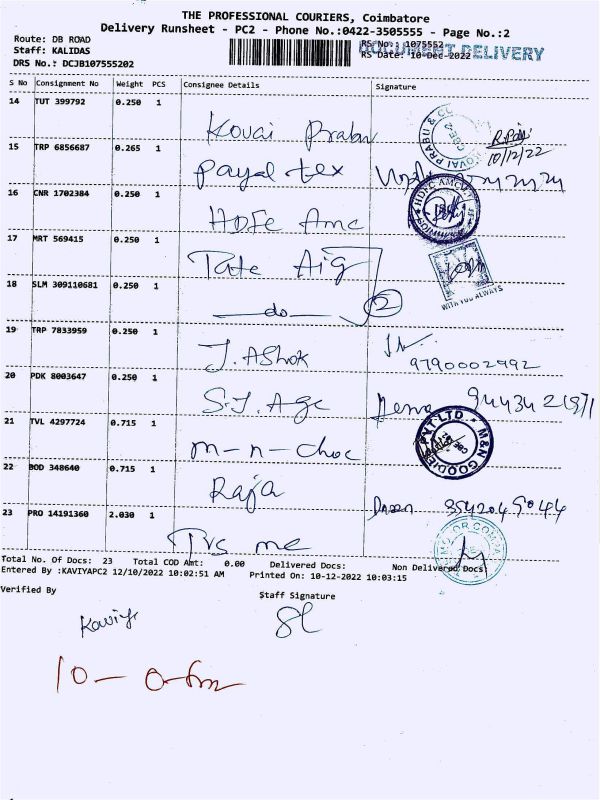 THE PROFESSIONAL COURIERS, Coimbatore
Delivery Runsheet - PC2 - Phone No.:0422-3505555 - Page No.:2
Route: DB ROAD
RS No.: 1075552
DOCUMENT DELIVERY
Staff: KALIDAS
RS Date: 10-Dec-2022
DRS No.: DCJB107555202
S No Consignment No Weight PCS Consignee Details Signature
14 TUT 399792 0.250 1
Kovai Prabu
KOVAI PRABU & CO
CBE-2
10/12/22
15 TRP 6856687 0.265 1
Payal tex
16 CNR 1702384 0.250 1
HDFC Amc
HDFC AMC
17 MRT 569415 0.250 1
Tate Aig
WITH YOU ALWAYS
18 SLM 309110681 0.250 1
do 2
19 TRP 7833959 0.250 1
J. Ashok
9790002992
20 PDK 8003647 0.250 1
S.J. Age
21 TVL 4297724 0.715 1
m-n-choc
M&N GOODIE PVT LTD.
22 BOD 348640 0.715 1
Raja
23 PRO 14191360 2.030 1
Tvs mc
MOTOR COMPA
Total No. Of Docs: 23 Total COD Amt: 0.00 Delivered Docs: Non Delivered Docs:
Entered By :KAVIYAPC2 12/10/2022 10:02:51 AM Printed On: 10-12-2022 10:03:15
Verified By Staff Signature
Kaviya